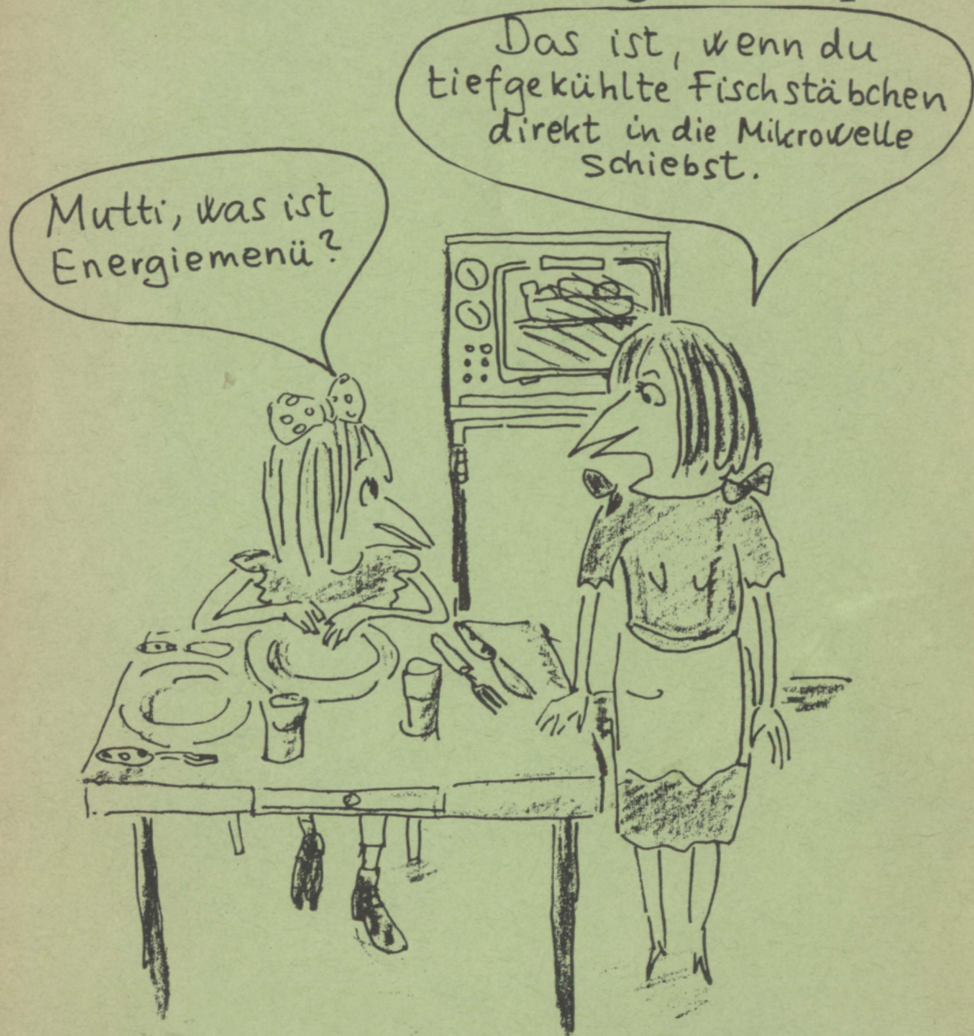 Mutti, was ist
Energiemenü?
Das ist, wenn du
tiefgekühlte Fischstäbchen
direkt in die Mikrowelle
schiebst.